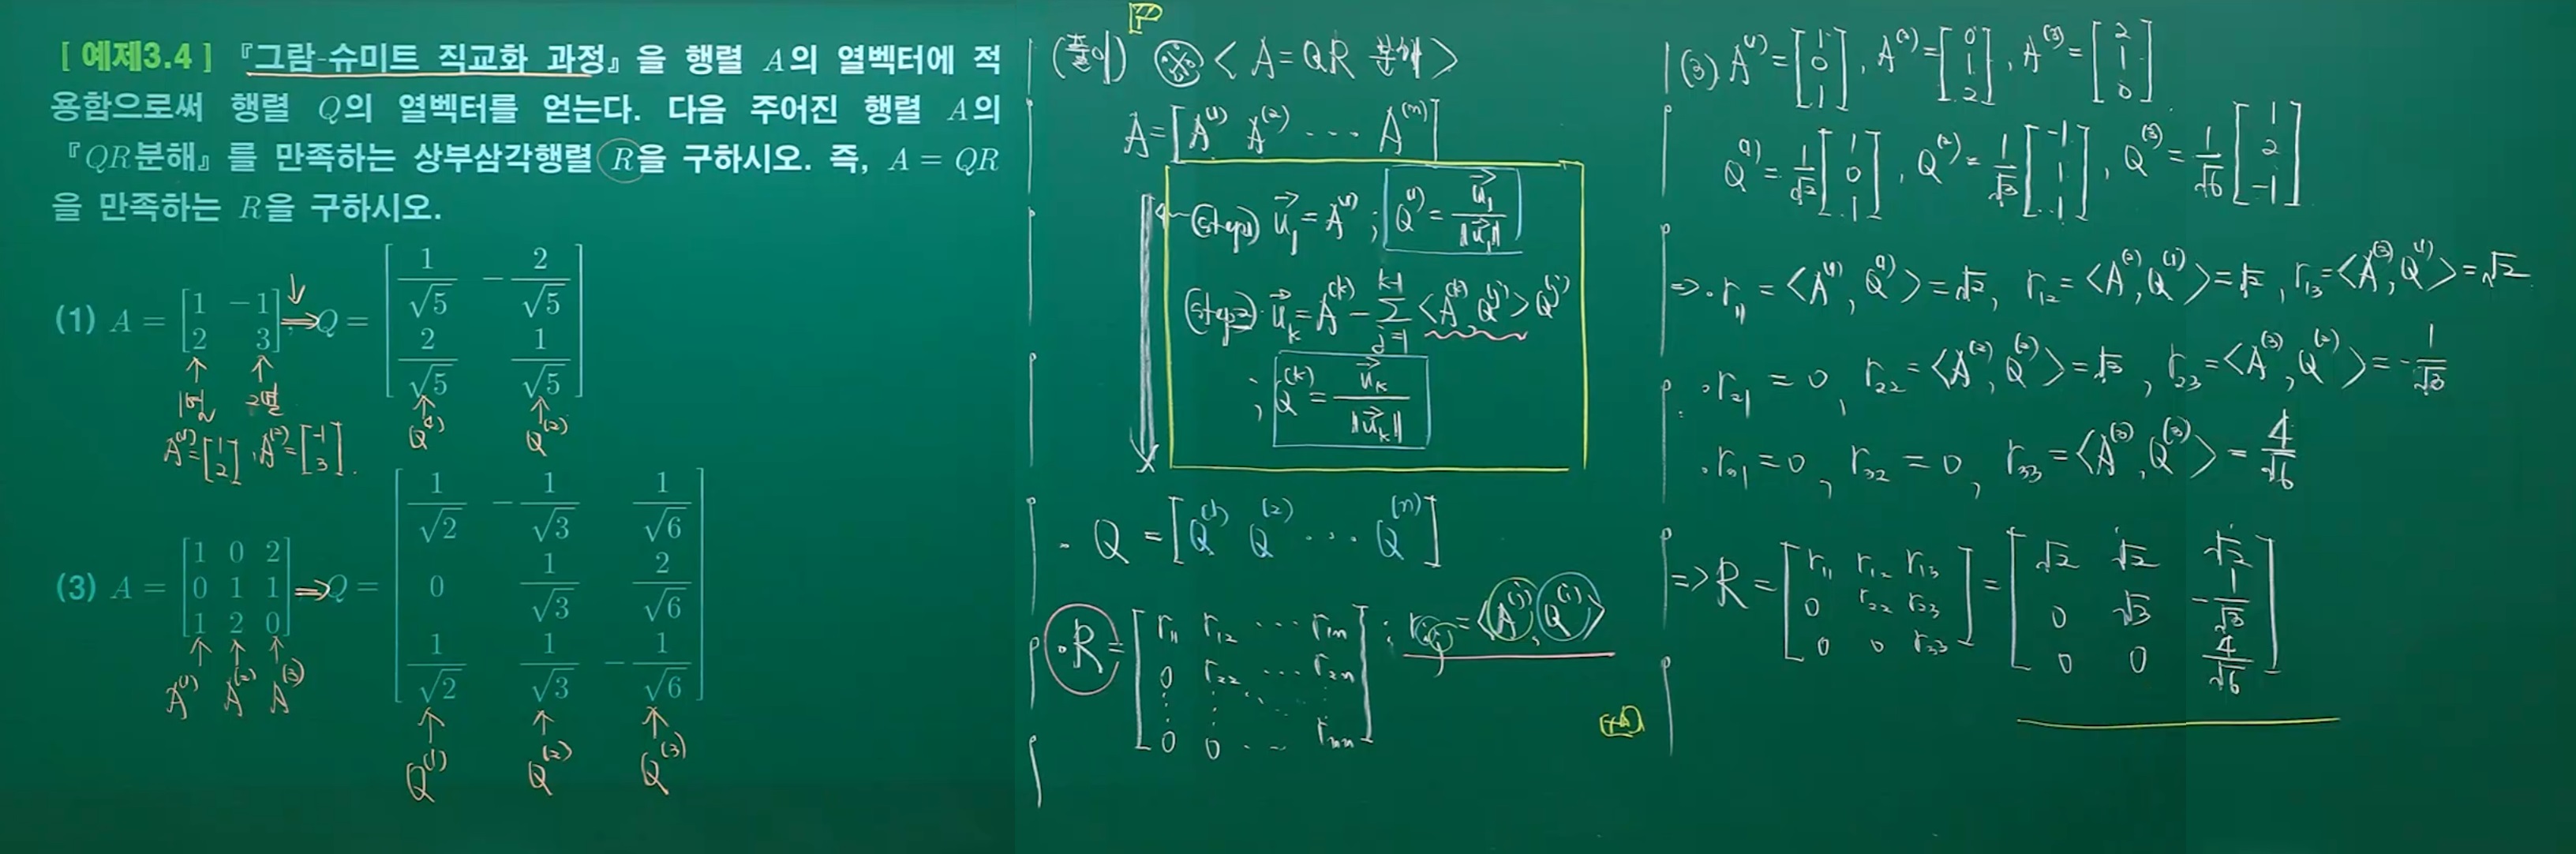 [ 예제3.4 ] 『그람-슈미트 직교화 과정』을 행렬 A의 열벡터에 적
용함으로써 행렬 Q의 열벡터를 얻는다. 다음 주어진 행렬 A의
『QR분해』를 만족하는 상부삼각행렬 R을 구하시오. 즉, A = QR
을 만족하는 R을 구하시오.
(1) A = [1 -1; 2 3], ⇒ Q = [1/√5 -2/√5; 2/√5 1/√5]
↑ ↑
1열 2열
A⁽¹⁾=[1; 2], A⁽²⁾=[-1; 3].
Q⁽¹⁾ Q⁽²⁾
(3) A = [1 0 2; 0 1 1; 1 2 0] ⇒ Q = [1/√2 -1/√3 1/√6; 0 1/√3 2/√6; 1/√2 1/√3 -1/√6]
↑ ↑ ↑
A⁽¹⁾ A⁽²⁾ A⁽³⁾
Q⁽¹⁾ Q⁽²⁾ Q⁽³⁾
P
(풀이) ※ < A = QR 분해 >
A = [A⁽¹⁾ A⁽²⁾ ··· A⁽ⁿ⁾]
(step1) u⃗₁ = A⁽¹⁾ ; Q⁽¹⁾ = u⃗₁/‖u⃗₁‖
(step2) u⃗ₖ = A⁽ᵏ⁾ - Σ_{j=1}^{k-1} <A⁽ᵏ⁾, Q⁽ʲ⁾> Q⁽ʲ⁾
; Q⁽ᵏ⁾ = u⃗ₖ/‖u⃗ₖ‖
· Q = [Q⁽¹⁾ Q⁽²⁾ ··· Q⁽ⁿ⁾]
· R = [r₁₁ r₁₂ ··· r₁ₙ; 0 r₂₂ ··· r₂ₙ; ⋮ ⋮ ⋱ ⋮; 0 0 ··· rₙₙ] ; rᵢⱼ = <A⁽ʲ⁾, Q⁽ⁱ⁾>
(3) A⁽¹⁾ = [1; 0; 1], A⁽²⁾ = [0; 1; 2], A⁽³⁾ = [2; 1; 0].
Q⁽¹⁾ = 1/√2 [1; 0; 1], Q⁽²⁾ = 1/√3 [-1; 1; 1], Q⁽³⁾ = 1/√6 [1; 2; -1]
⇒ · r₁₁ = <A⁽¹⁾, Q⁽¹⁾> = √2, r₁₂ = <A⁽²⁾, Q⁽¹⁾> = √2, r₁₃ = <A⁽³⁾, Q⁽¹⁾> = √2
· r₂₁ = 0, r₂₂ = <A⁽²⁾, Q⁽²⁾> = √3, r₂₃ = <A⁽³⁾, Q⁽²⁾> = -1/√3
· r₃₁ = 0, r₃₂ = 0, r₃₃ = <A⁽³⁾, Q⁽³⁾> = 4/√6
⇒ R = [r₁₁ r₁₂ r₁₃; 0 r₂₂ r₂₃; 0 0 r₃₃] = [√2 √2 √2; 0 √3 -1/√3; 0 0 4/√6]